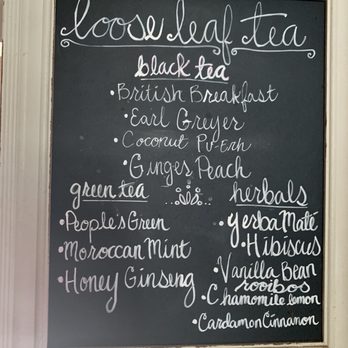 loose leaf tea
black tea
•British Breakfast
•Earl Greyer
•Coconut Pu-Erh
•Ginger Peach
green tea
•People's Green
•Moroccan Mint
•Honey Ginseng
herbals
•Yerba Maté
•Hibiscus
•Vanilla Bean
rooibos
•Chamomile lemon
•Cardamon Cinnamon